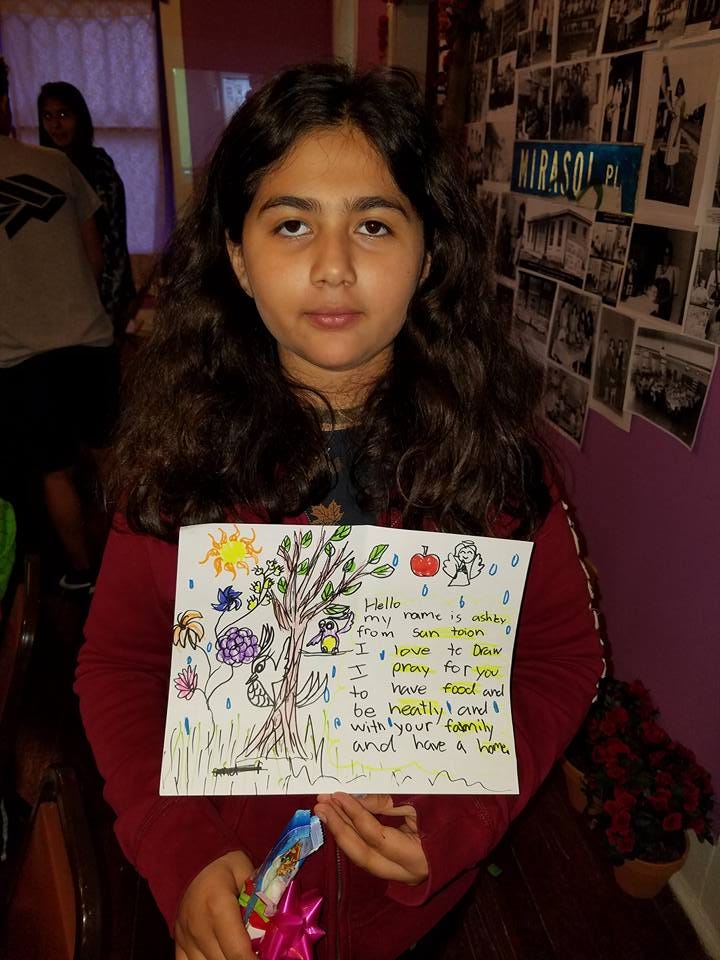 MIRASOL PL
Hello
my name is ashly
from san toion
I love to Draw
I pray for you
to have food and
be heatly and
with your
and have a home